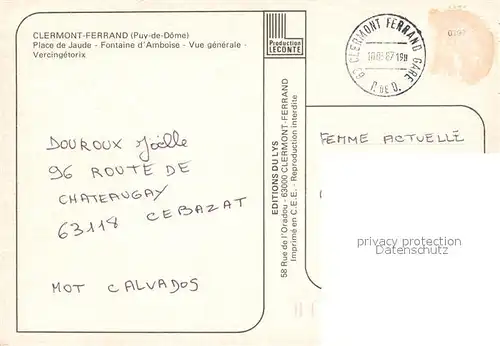 CLERMONT-FERRAND (Puy-de-Dôme)
Place de Jaude - Fontaine d'Amboise - Vue générale -
Vercingétorix
Production
LECONTE
63 CLERMONT FERRAND GARE
P. DE D.
DOUROUX Joëlle
96 ROUTE DE
CHATEAUGAY
63118 CEBAZAT
MOT CALVADOS
EDITIONS DU LYS
58 Rue de l'Oradou - 63000 CLERMONT-FERRAND
Imprimé en C.E.E. - Reproduction interdite
FEMME ACTUELLE
privacy protection
Datenschutz